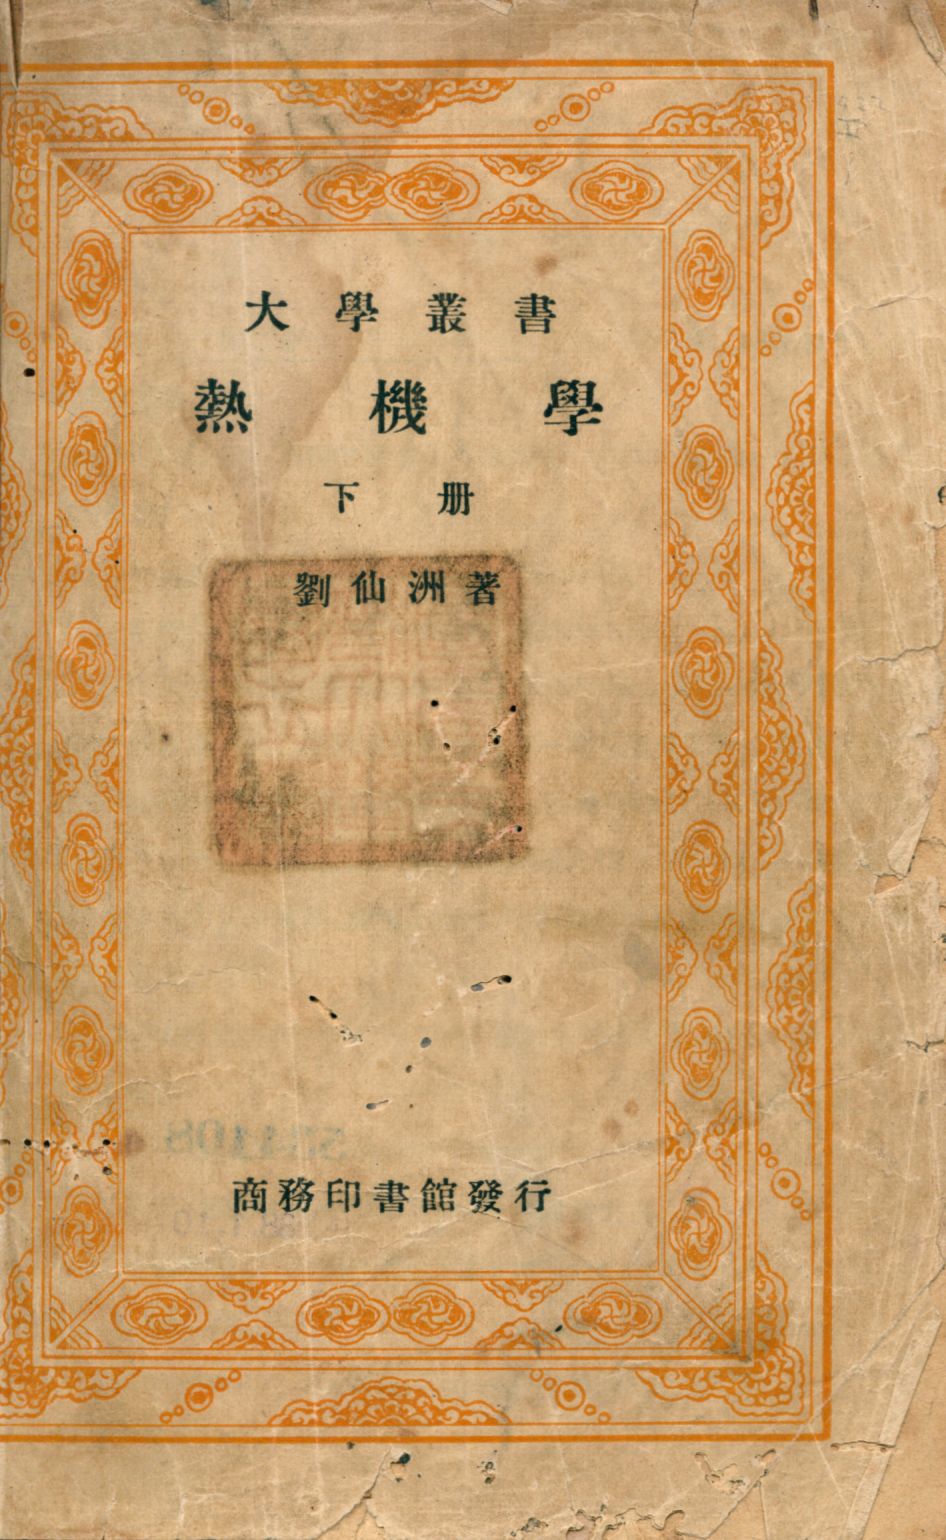 大學叢書
熱機學
下册
劉仙洲著
商務印書館發行